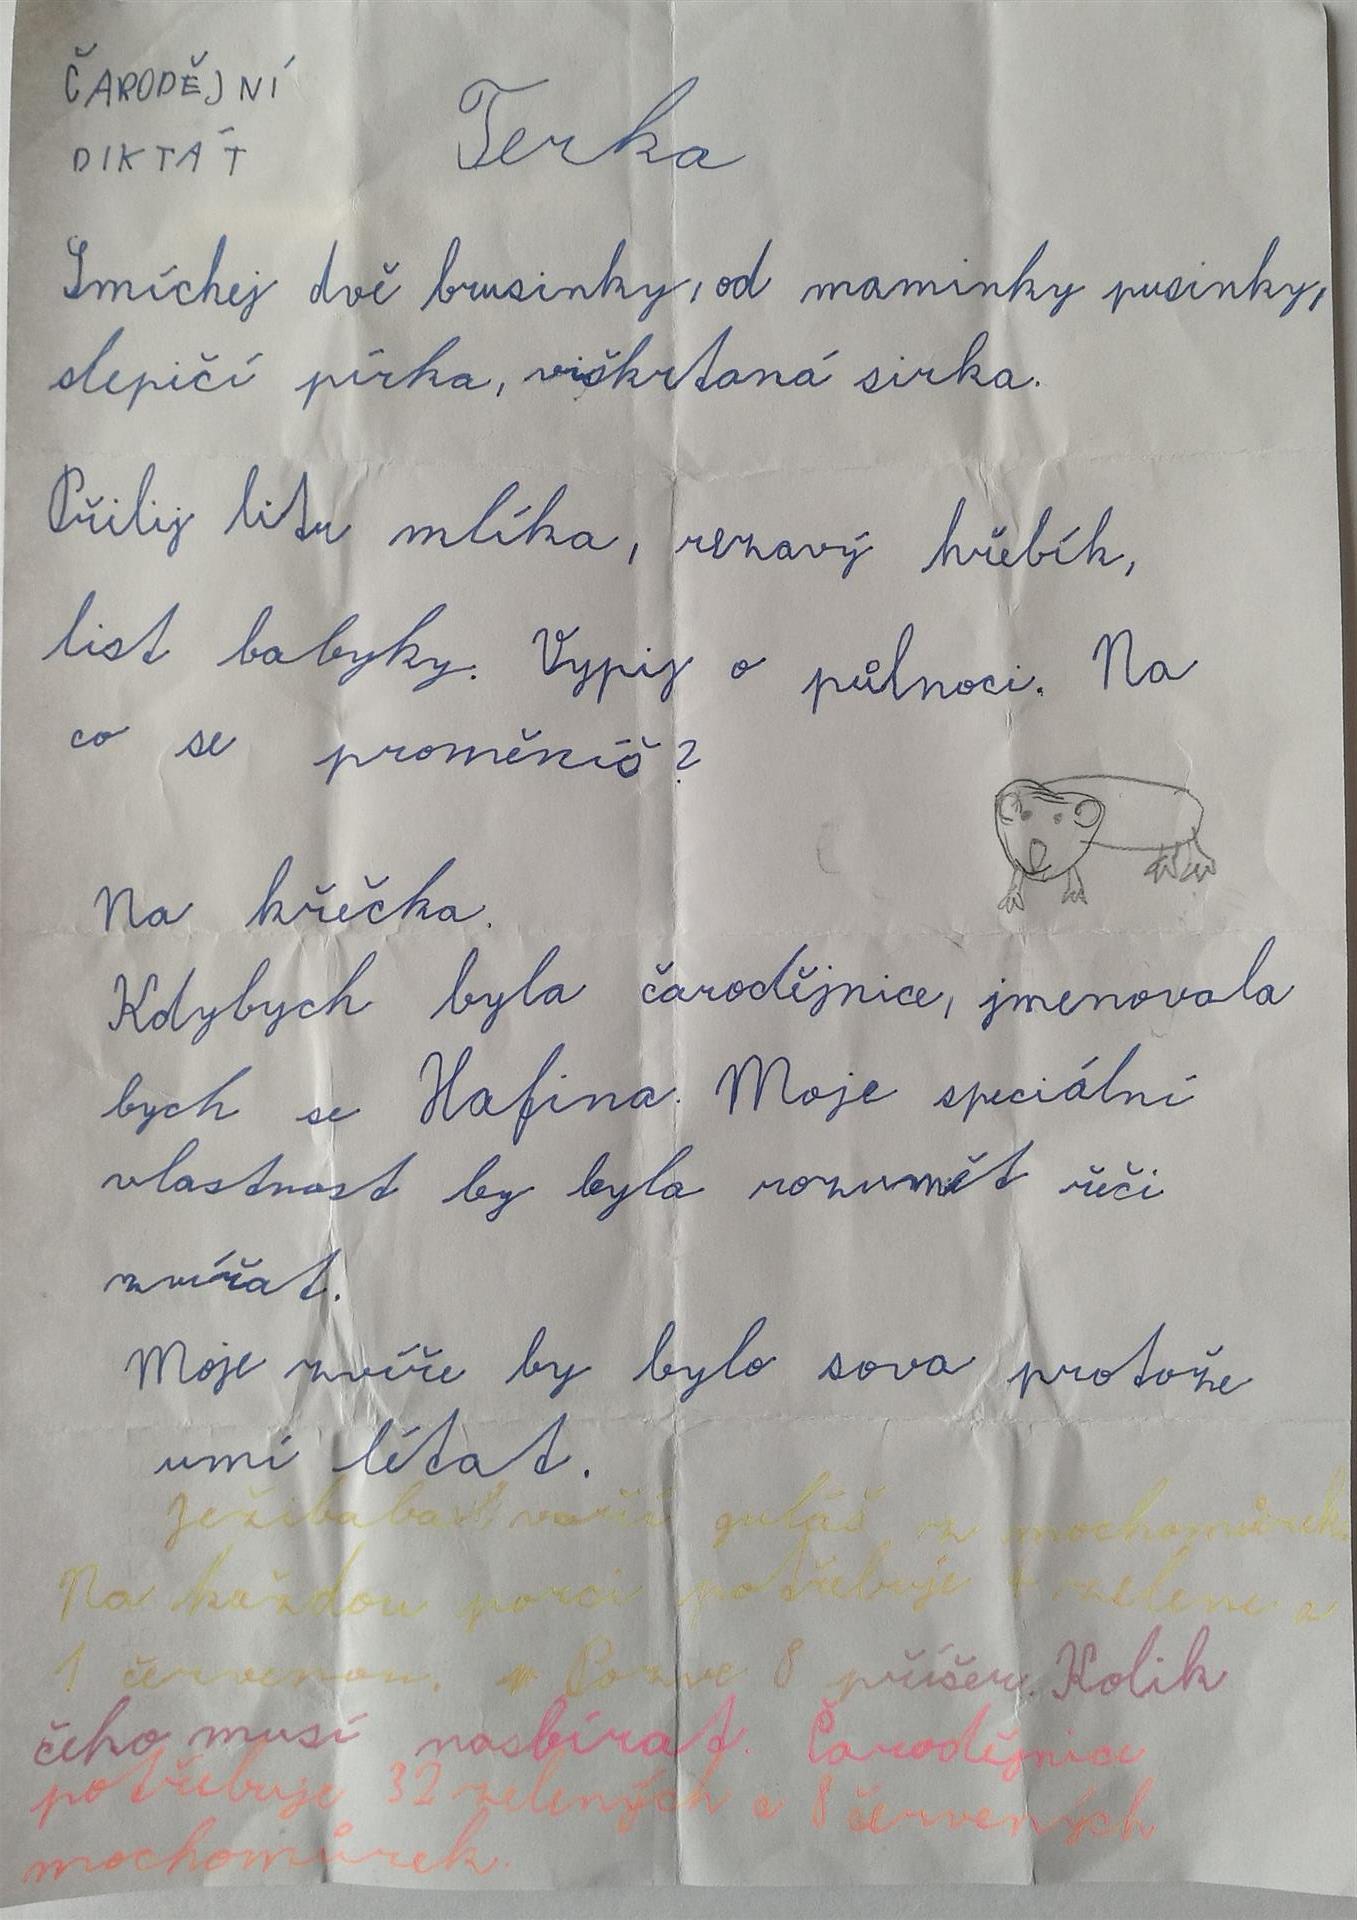 ČARODĚJNÍ
DIKTÁT
Terka
Smíchej dvě brusinky, od maminky pusinky,
slepičí pírka, viškrtaná sirka.
Přilij litr mlíka, rezavý hřebík,
list babyky. Vypij o půlnoci. Na
co se proměníš?
Na křečka.
Kdybych byla čarodějnice, jmenovala
bych se Hafina. Moje speciální
vlastnost by byla rozumět řeči
zvířat.
Moje zvíře by bylo sova protože
umí lítat.
Ježibaba vaří guláš z mochomůrek.
Na každou porci potřebuje 4 zelene a
1 červenou. Pozve 8 příšer. Kolik
čeho musí nasbírat. Čarodějnice
potřebuje 32 zelených a 8 červených
mochomůrek.